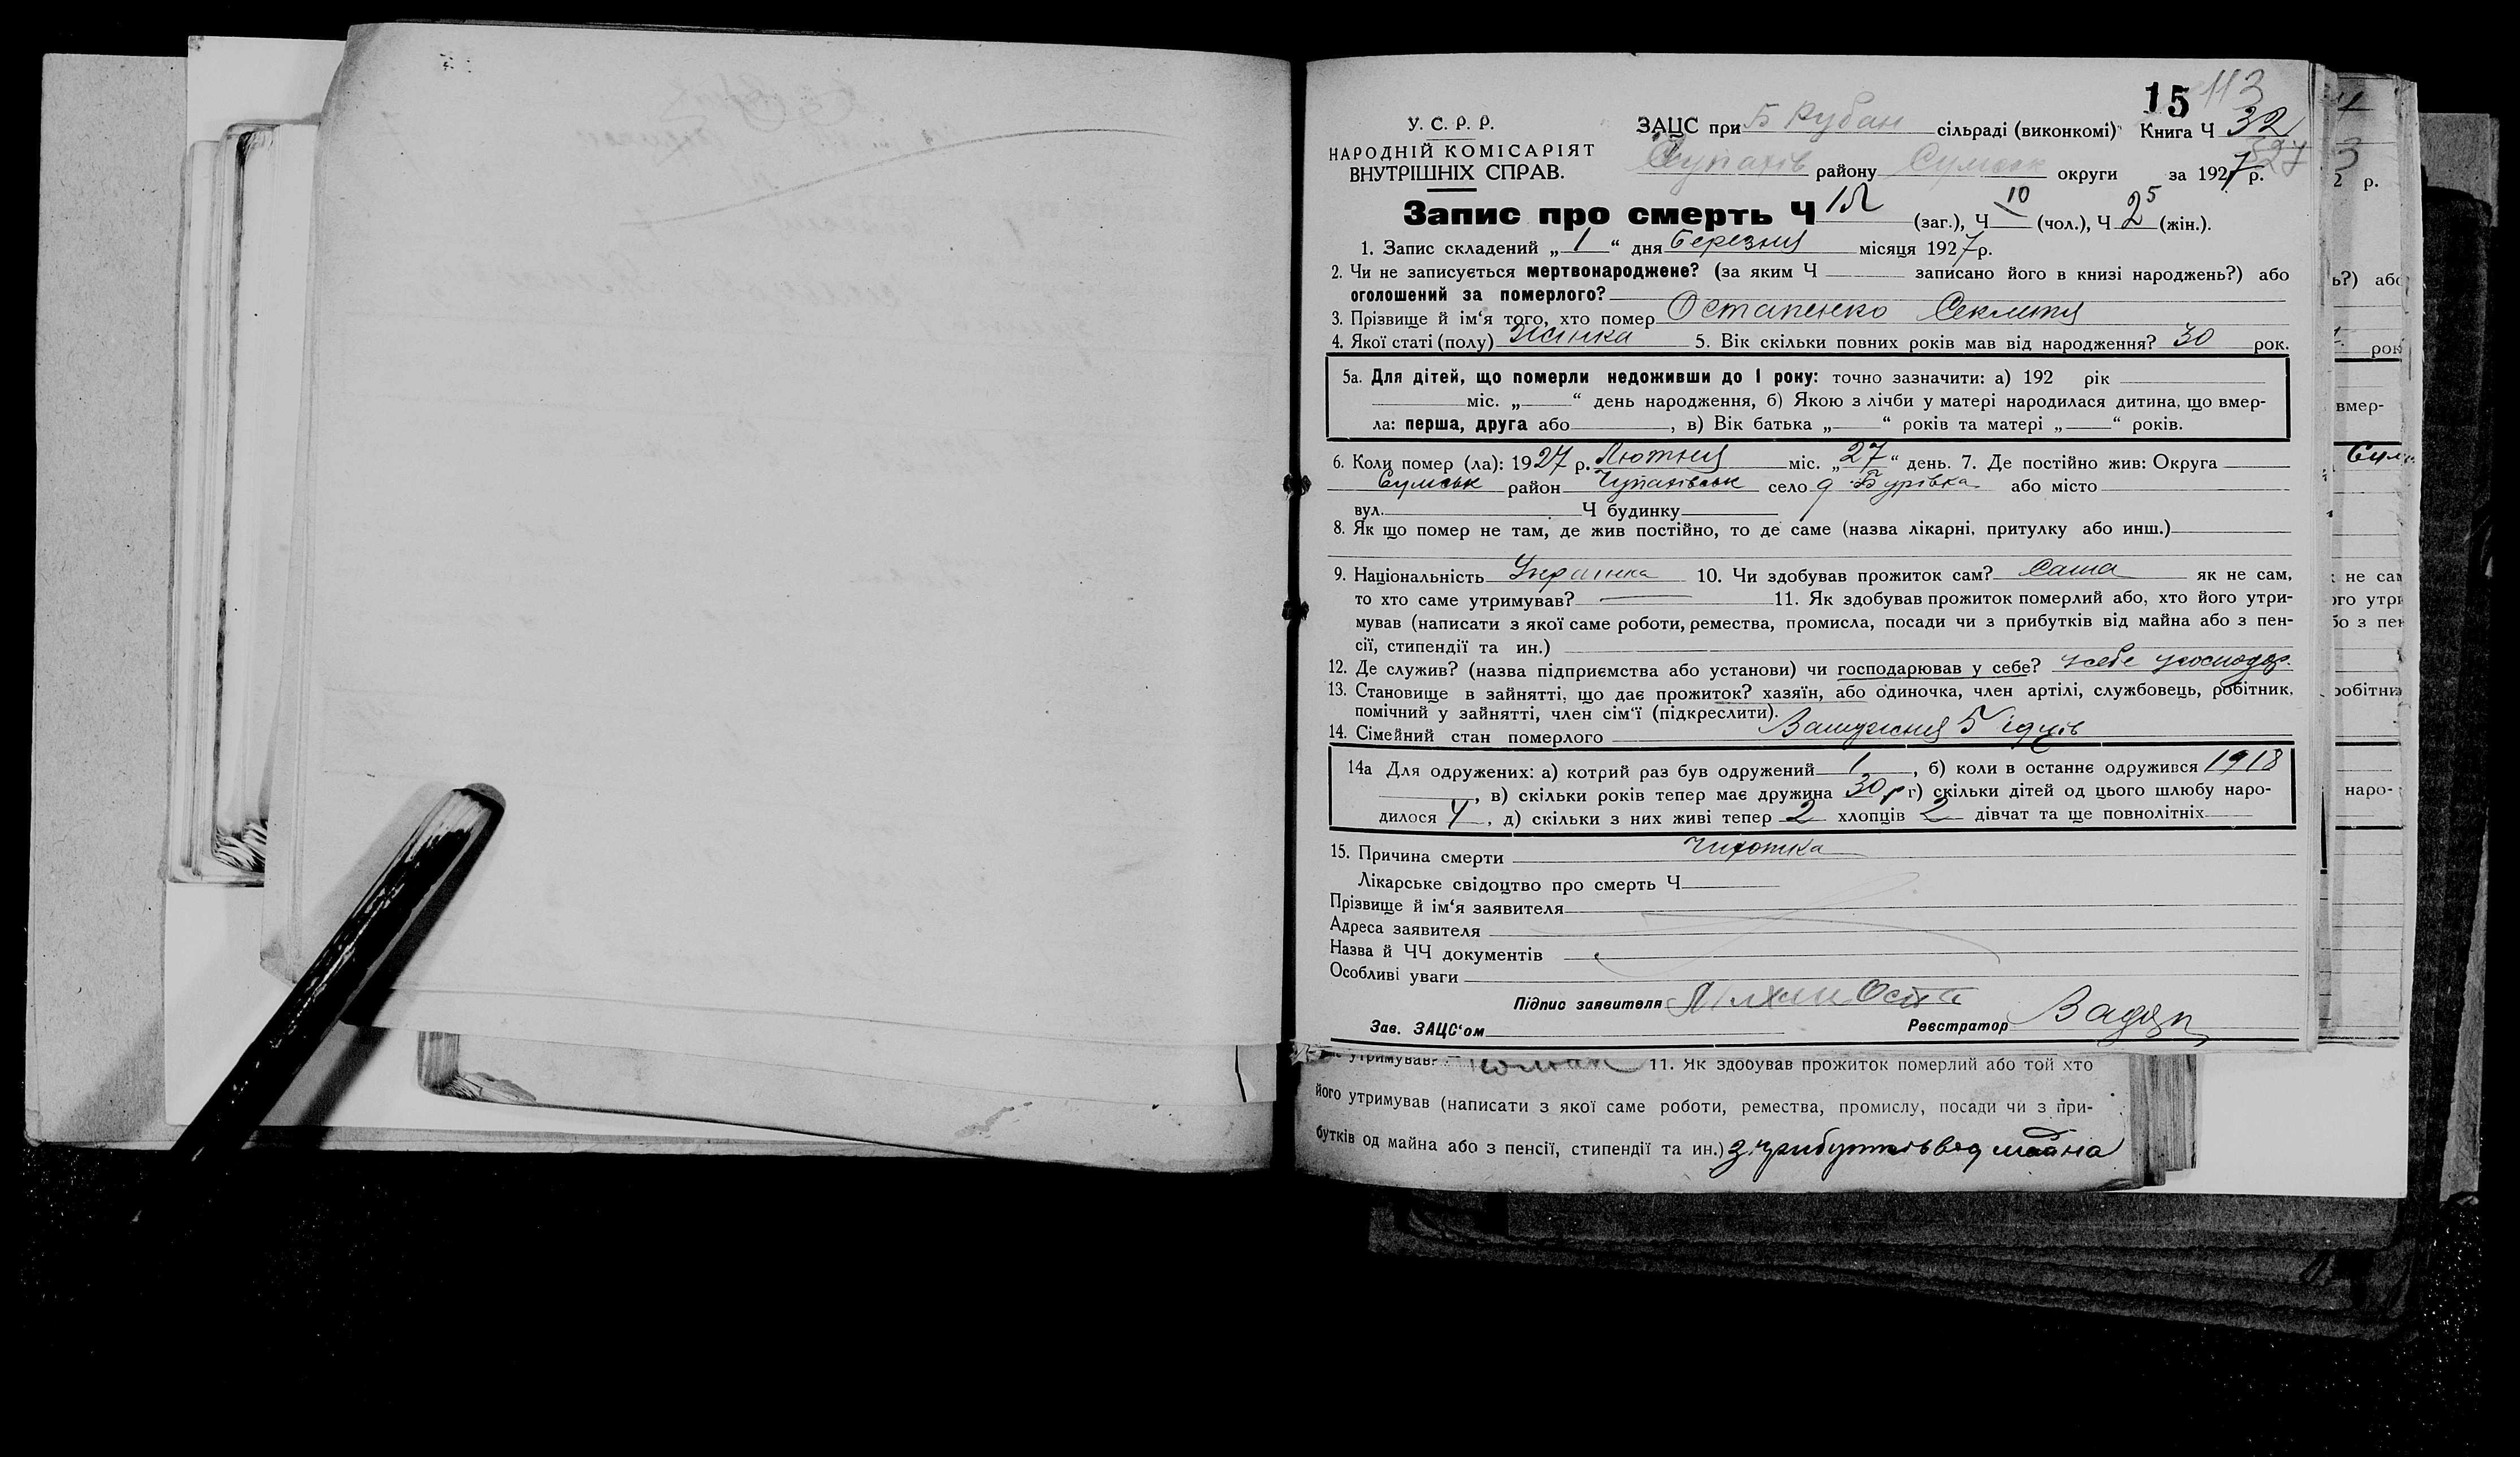 15 113
У. С. Р. Р.
НАРОДНІЙ КОМІСАРІЯТ
ВНУТРІШНІХ СПРАВ.
ЗАЦС при Б Рубан сільраді (виконкомі) Книга Ч 32
Чупахів району Сумськ округи за 1927 р.
Запис про смерть Ч 15 (заг.), Ч 10 (чол.), Ч 5 (жін.).
1. Запис складений „ 1 “ дня Березня місяця 1927 р.
2. Чи не записується мертвонароджене? (за яким Ч записано його в книзі народжень?) або
оголошений за померлого?
3. Прізвище й ім‘я того, хто помер Остапенко Секлета
4. Якої статі (полу) Жінка 5. Вік скільки повних років мав від народження? 30 рок.
5а. Для дітей, що померли недоживши до 1 року: точно зазначити: а) 192 рік
міс. „ “ день народження, б) Якою з лічби у матері народилася дитина, що вмер-
ла: перша, друга або , в) Вік батька „ “ років та матері „ “ років.
6. Коли помер (ла): 1927 р. Лютня міс. „27“ день. 7. Де постійно жив: Округа
Сумськ район Чупахівськ село д. Бурівка або місто
вул. Ч будинку
8. Як що помер не там, де жив постійно, то де саме (назва лікарні, притулку або инш.)
9. Національність Українка 10. Чи здобував прожиток сам? Сама як не сам,
то хто саме утримував? 11. Як здобував прожиток померлий або, хто його утри-
мував (написати з якої саме роботи, ремества, промисла, посади чи з прибутків від майна або з пен-
сії, стипендії та ин.)
12. Де служив? (назва підприємства або установи) чи господарював у себе? у себе у господар.
13. Становище в зайнятті, що дає прожиток? хазяїн, або одиночка, член артілі, службовець, робітник,
помічний у зайнятті, член сім‘ї (підкреслити).
14. Сімейний стан померлого Замужня 5 їдців
14а Для одружених: а) котрий раз був одружений 1 , б) коли в останнє одружився 1918
, в) скільки років тепер має дружина 30 р г) скільки дітей од цього шлюбу наро-
дилося 4 , д) скільки з них живі тепер 2 хлопців 2 дівчат та ще повнолітніх
15. Причина смерти Чихотка
Лікарське свідоцтво про смерть Ч
Прізвище й ім‘я заявителя
Адреса заявителя
Назва й ЧЧ документів
Особливі уваги
Підпис заявителя
Зав. ЗАЦС‘ом Реєстратор
утримував? 11. Як здобував прожиток померлий або той хто
його утримував (написати з якої саме роботи, ремества, промислу, посади чи з при-
бутків од майна або з пенсії, стипендії та ин.) з прибутків од майна